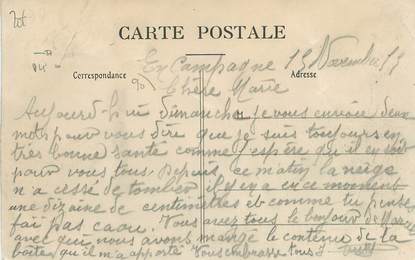 CARTE POSTALE
Correspondance
Adresse
En Campagne 15 Novembre
Chère Marie
Aujourd-hui dimanche je vous envoie deux
mots pour vous dire que je suis toujours en
très bonne santé comme j'espère que il en soit
pour vous tous Depuis ce matin la neige
n'a cessé de tomber il y en a en ce moment
une dizaine de centimètres et comme tu pense
fai pas caou. Vous avez tous le bonjour de
avec qui nous avons mangé le contenu de la
boite qu'il m'a apporté Vous embrasse tous